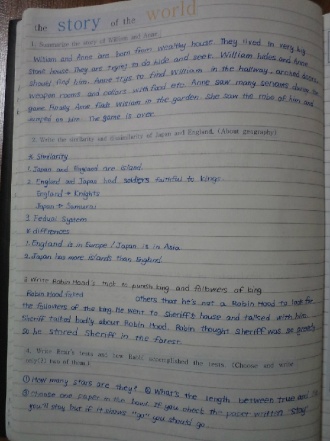 the story of the world
1. Summarize the story of William and Anne.
William and Anne are born from wealthy house. They lived in very big
stone house. They are trying to do hide and seek. William hides and Anne
should find him. Anne tries to find William in the hallway, arched
weapon rooms and cellars with food etc. Anne saw many servants during the
game. Finally Anne finds William in the garden. She saw the robe of him and
jumped on him. The game is over.
2. Write the similarity and dissimilarity of Japan and England. (About geography)
※ Similarity
1. Japan and England are island.
2. England and Japan had soldiers faithful to kings.
England → Knights
Japan → Samurai
3. Feudal System
※ differences
1. England is in Europe / Japan is in Asia.
2. Japan has more islands than England.
3. Write Robin Hood's trick to punish king and followers of king
Robin Hood fooled others that he's not a Robin Hood to look for
the followers of the king. He went to Sheriff's house and talked with him.
Sheriff talked badly about Robin Hood. Robin thought Sheriff was so greedy
so he stored Sheriff in the forest.
4. Write tests and how accomplished the tests. (Choose and write
two of them.)
① How many stars are they? ② What's the length between true and
③ Choose one paper in the bowl. If you check the paper written "stay"
you'll stay but if it shows "go" you should go.